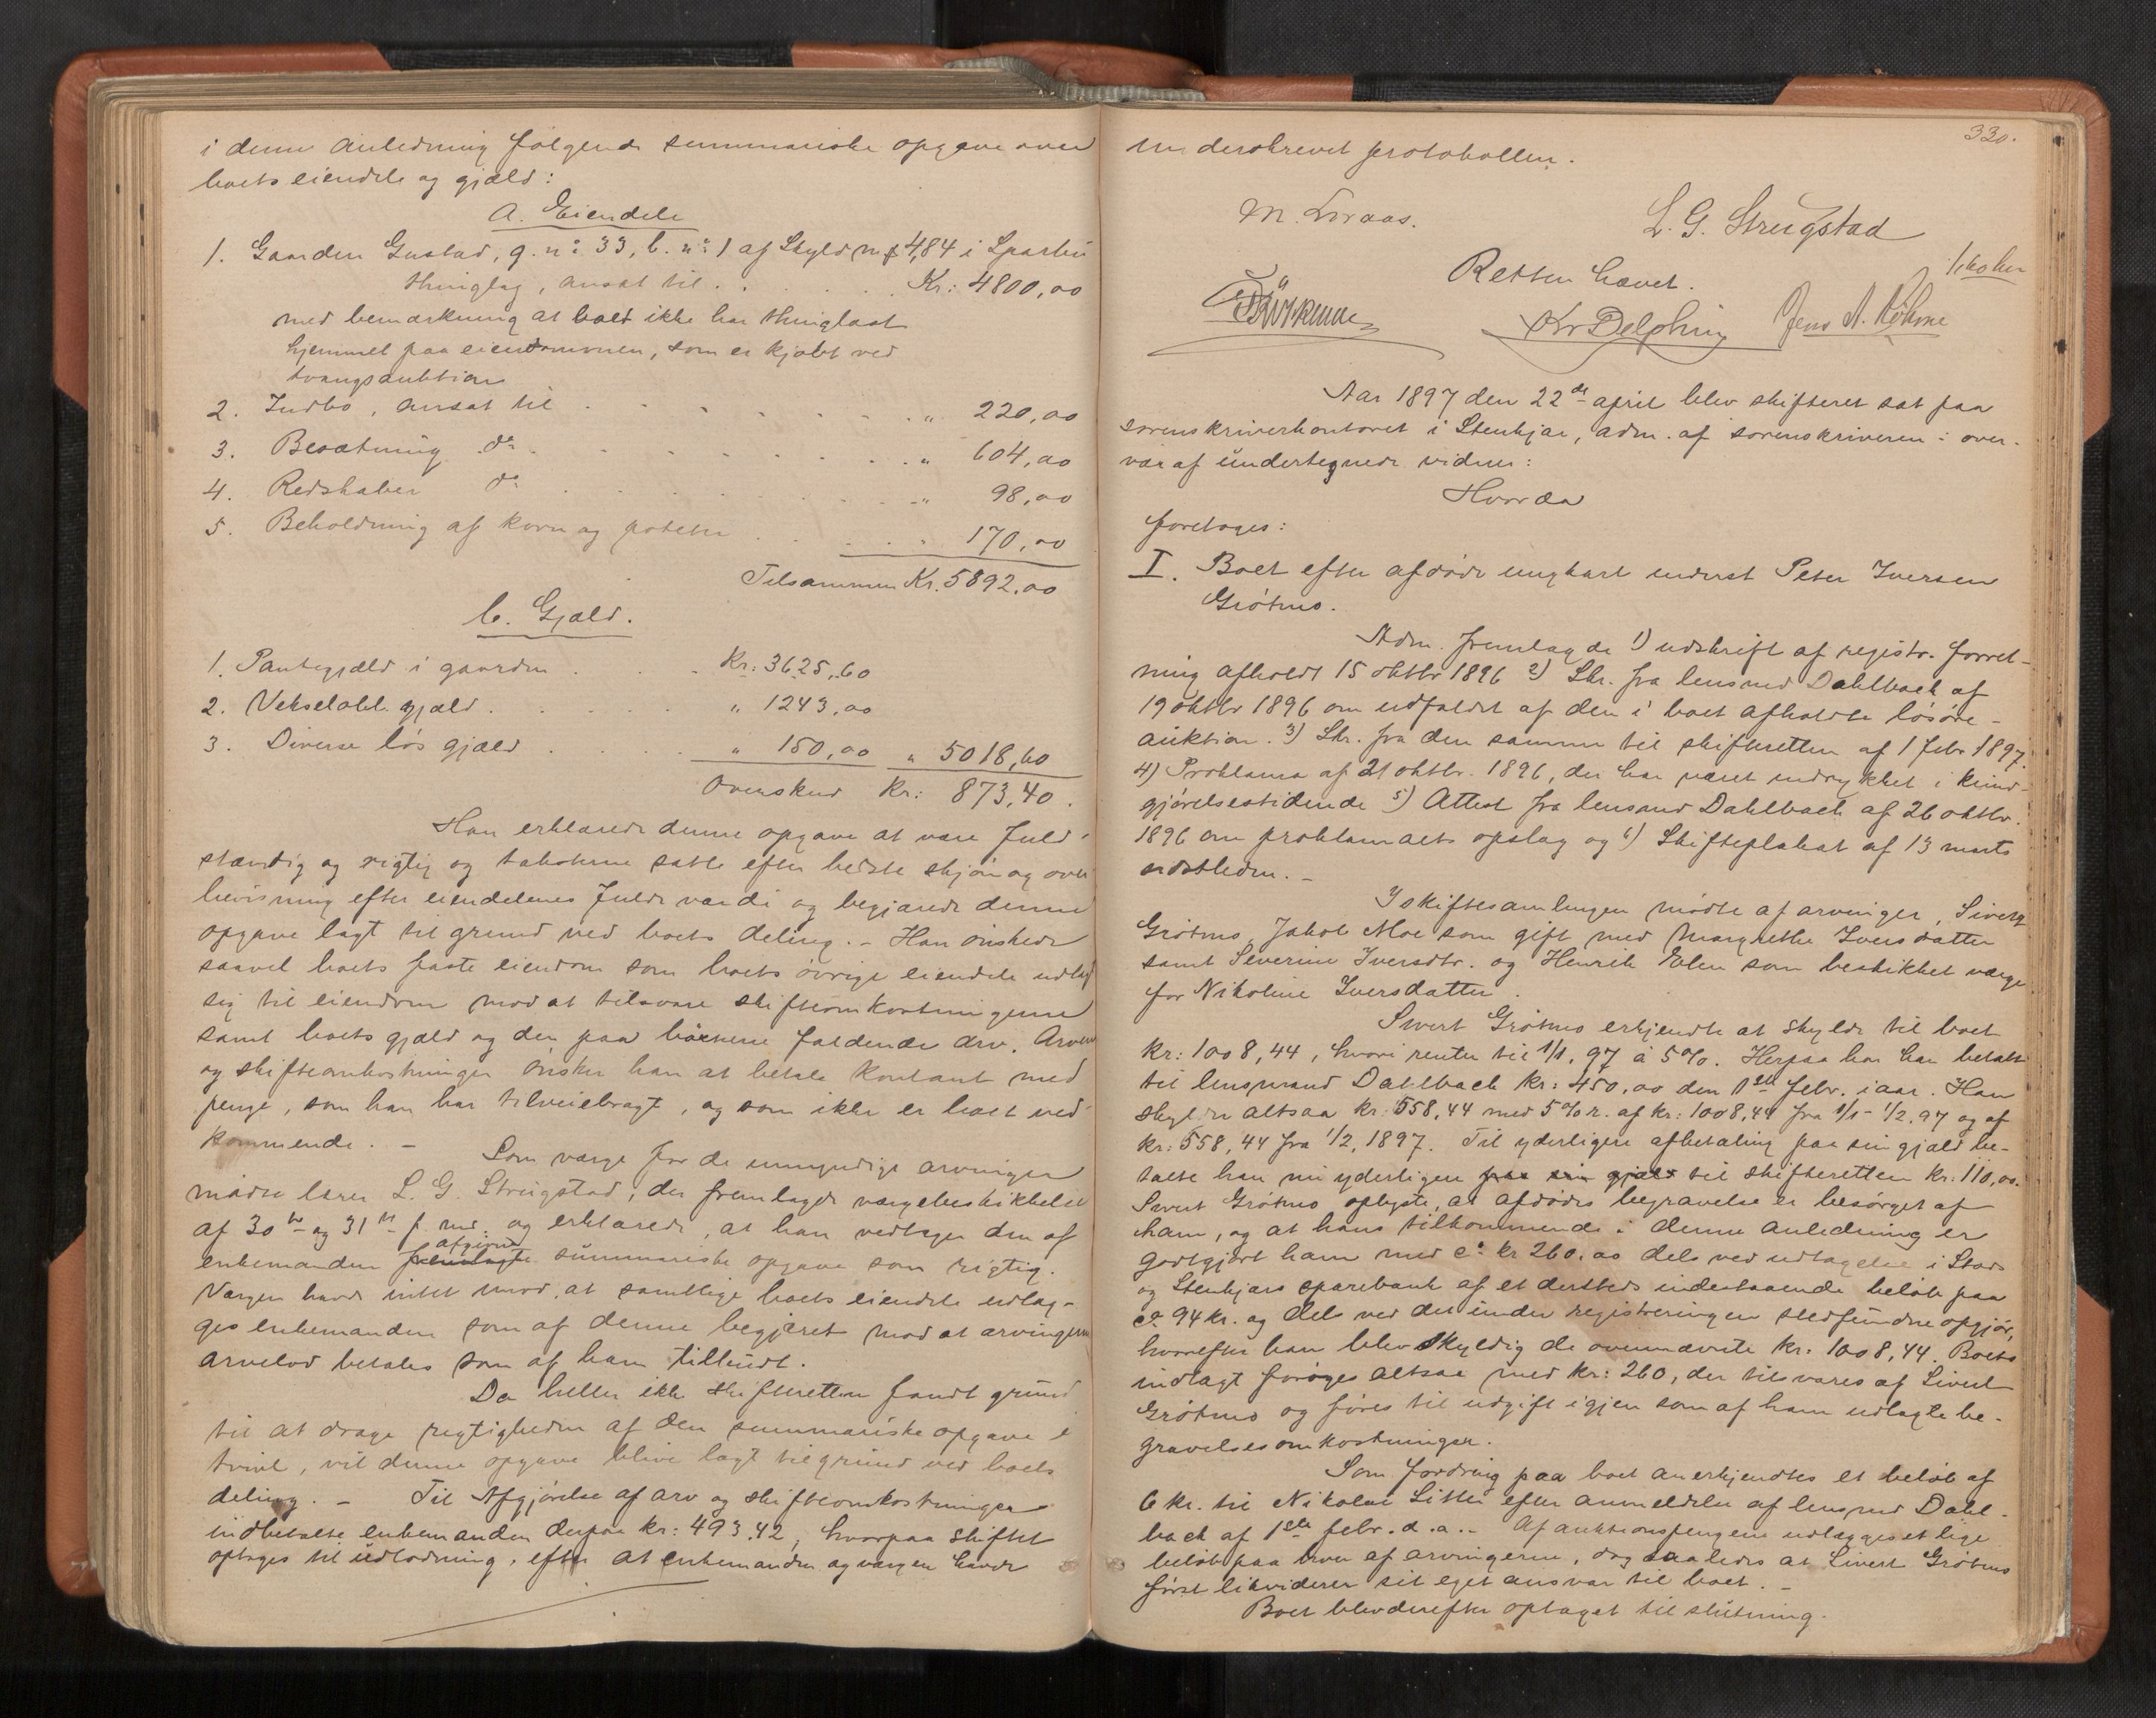 i denne anledning følgende summariske opgave over
boets eiendele og gjæld:
A. Eiendele
1. Gaarden Gustad, g. no. 33, b. no. 1 af Skyld m 4,84 i Sparbu
thinglag, ansat til . . . Kr: 4800,00
med bemærkning at boet ikke har thinglæst
hjemmel paa eiendommen, som er kjøbt ved
tvangsauktion
2. Indbo, ansat til . . . " 220,00
3. Besætning do . . . " 604,00
4. Redskaber do . . . " 98,00
5. Beholdning af korn og poteter . . . 170,00
Tilsammen Kr. 5892,00
b. Gjæld.
1. Pantegjæld i gaarden . . . Kr: 3625,60
2. Vekselobl. gjæld . . . " 1243,00
3. Diverse løs gjæld . . . " 150,00 " 5018,60
Overskud Kr: 873,40.
Han erklærede denne opgave at være fuld-
stændig og rigtig og taksterne satte efter bedste skjøn og over
bevisning efter eiendelenes fulde værdi og begjærede denne
opgave lagt til grund ved boets deling. - Han ønskede
saavel boets faste eiendom som boets øvrige eiendele udlagt
sig til eiendom mod at tilsvare skifteomkostningerne
samt boets gjæld og den paa børnene faldende arv. Arven
og skifteomkostninger ønsker han at betale kontant med
penge, som han har tilveiebragt, og som ikke er boet ved-
kommende. -
Som værge for de umyndige arvinger
mødte lærer L. G. Strugstad, der fremlagde værgebeskikkelse
af 30te og 31te f. md. og erklærede, at han vedtager den af
enkemanden fremlagte afgivne summariske opgave som rigtig.
Værgen havde intet mod, at samtlige boets eiendele udlæg-
ges enkemanden som af denne begjæret mod at arvingerne
arvelod betales som af ham tilbudt.
Da heller ikke skifteretten fandt grund
til at drage rigtigheden af den summariske opgave i
tvivl, vil denne opgave blive lagt til grund ved boets
deling. - Til Afgjørelse af arv og skifteomkostninger
indbetalte enkemanden derpaa kr: 493.42, hvorpaa skiftet
optages til udlodning, efter at enkemanden og værgen havde
330.
underskrevet protokollen.
M. Liraas. L. G. Strugstad
Retten hævet.
Kr Delphin Jens A.
Aar 1897 den 22de april blev skifteret sat paa
sorenskriverkontoret i Stenkjær, adm. af sorenskriveren i over-
vær af undertegnede vidner:
Hvor da
foretoges:
I. Boet efter afdøde ungkarl inderst Peter Iversen
Grötmo.
Adm. fremlagde 1) udskrift af registr. forret-
ning afholdt 15 oktbr 1896 2) Skr. fra lensmd Dahlback af
19 oktbr 1896 om udfaldet af den i boet afholdte løsøre-
auktion. 3) Skr. fra den samme til skifteretten af 1 febr 1897.
4) Proklama af 21 oktbr. 1896, der har været indrykket i kund-
gjørelsestidende 5) Attest fra lensmd Dahlback af 26 oktbr.
1896 om proklamaets opslag og 6) Skifteplakat af 13 marts
sidstleden. -
I skiftesamlingen mødte af arvinger, Sivert
Grötmo, Jakob Moe som gift med Margrethe Iversdatter
samt Severine Iversdtr. og Henrik Eklen som beskikket værge
for Nikoline Iversdatter.
Sivert Grötmo erkjendte at skylde til boet
kr: 1008,44, hvori renter til 1/1. 97 á 5%. Herpaa har han betalt
til lensmand Dahlback kr: 450,00 den 1ste febr. i aar. Han
skylder altsaa kr: 558,44 med 5% r. af kr: 1008,44 fra 1/1 - 1/2.97 og af
kr: 558,44 fra 1/2. 1897. Til yderligere afbetaling paa sin gjæld be-
talte han nu yderligere paa sin gjæld til skifteretten kr. 110,00.
Sivert Grötmo oplyste, at afdødes begravelse er besørget af
ham, og at hans tilkommende i denne anledning er
godtgjort ham med ca kr 260,00 dels ved udtagelse i Stods
og Stenkjærs sparebank af et dersteds indestaaende beløb paa
ca 94 kr. og dels ved det under registreringen stedfundne opgjør,
hvorefter han blev skyldig de ovennævnte kr. 1008,44. Boets
indtægt forøges altsaa med kr: 260, der tilsvares af Sivert
Grötmo og føres til udgift igjen som af ham udlagte be-
gravelsesomkostninger.
Som fordring paa boet anerkjendtes et beløb af
6 kr. til Nikolai efter anmeldelse af lensmd Dahl-
back af 1ste febr. d. a. - Af auktionspengene udlægges et lige
beløb paa hver af arvingerne, dog saaledes at Sivert Grötmo
først likviderer sit eget ansvar til boet. -
Boet blev derefter optaget til slutning.